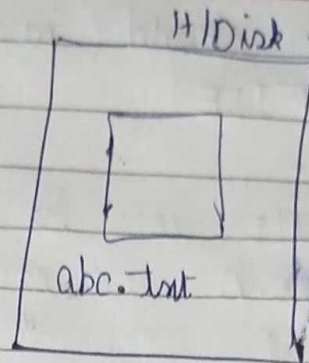 H/Disk
abc.txt